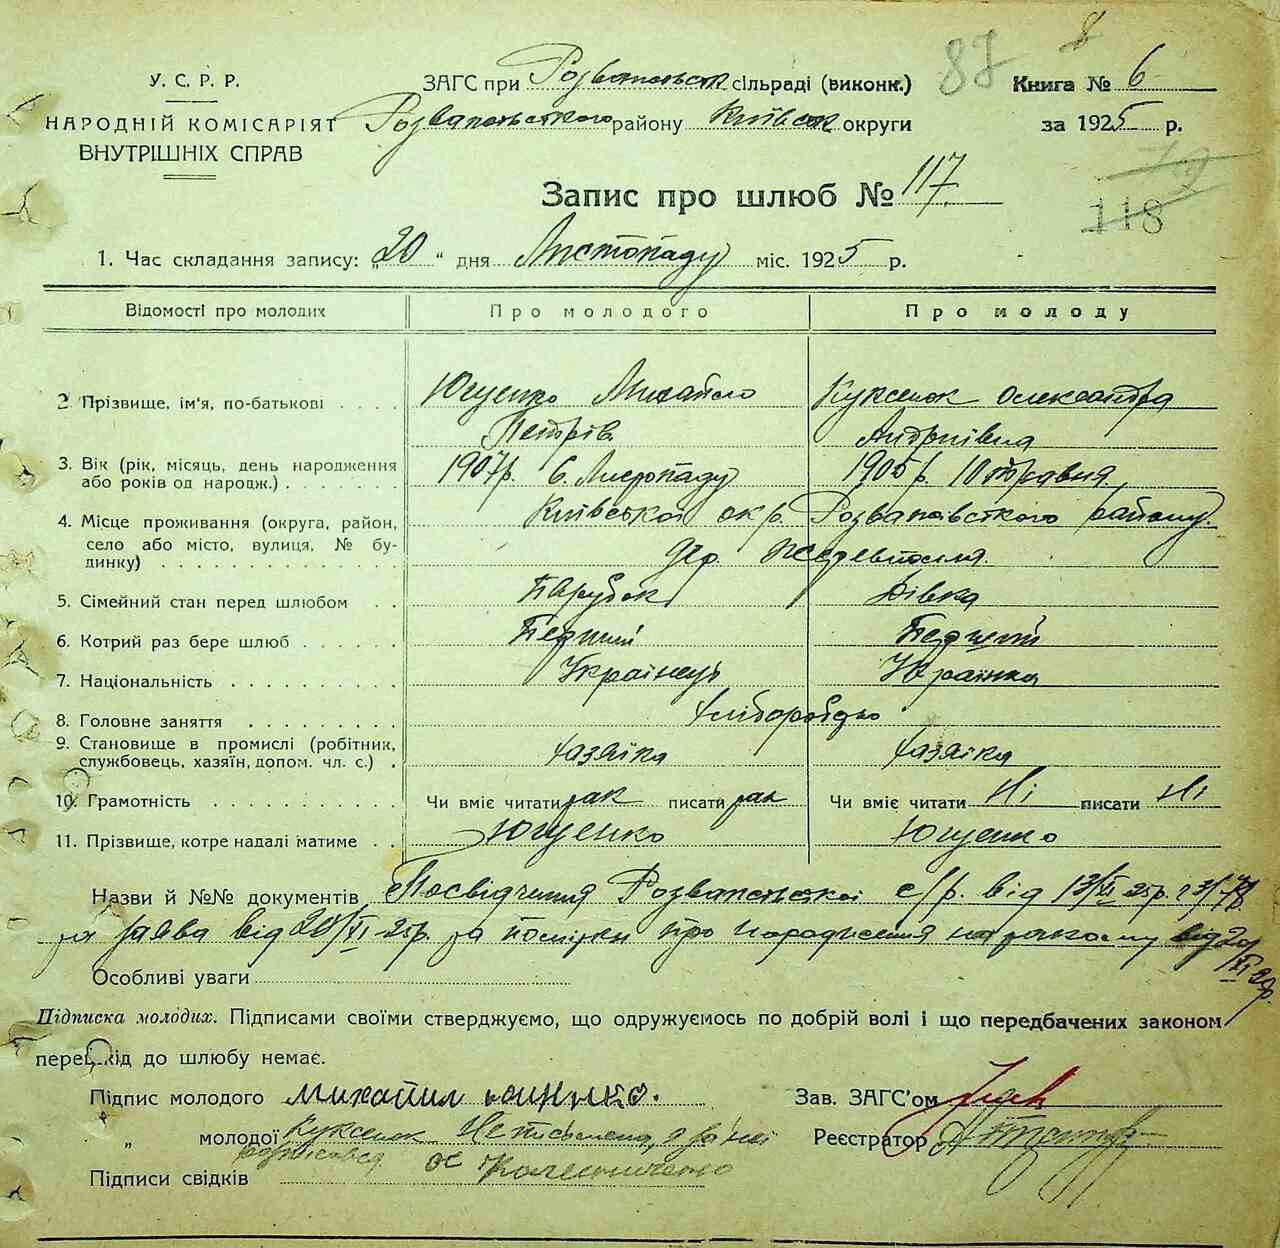 87 8
У.С.Р.Р.
НАРОДНІЙ КОМІСАРІЯТ
ВНУТРІШНІХ СПРАВ
ЗАГС при Розважельськ сільраді (виконк.)
Розважельського району Київськ округи
Книга № 6
за 1925 р.
Запис про шлюб № 117.
118
1. Час складання запису: „20“ дня Листопаду міс. 1925 р.
Відомості про молодих Про молодого Про молоду
2 Прізвище, ім'я, по-батькові Ющенко Михайло Куксенок Олександра
Петрів Андріівна
3. Вік (рік, місяць, день народження 1907р. 6. Листопаду 1905р. 10 травня
або років од народж.)
4. Місце проживання (округа, район, Київської окр. Розважевського району.
село або місто, вулиця, № бу- дер.
динку)
5. Сімейний стан перед шлюбом Парубок Дівка
6. Котрий раз бере шлюб Перший Перший
7. Національність Українець Українка
8. Головне заняття хліборобство
9. Становище в промислі (робітник, хазяїка хазяїка
службовець, хазяїн, допом. чл. с.)
10. Грамотність Чи вміє читати так писати так Чи вміє читати Ні писати Ні
11. Прізвище, котре надалі матиме Ющенко Ющенко
Назви й №№ документів Посвідчення Розважельської с/р. від 13/XI 25р.
та заява від 20/XI-25р. про народження від 20/XI 25р.
Особливі уваги
Підписка молодих. Підписами своїми стверджуємо, що одружуємось по добрій волі і що передбачених законом
перешкід до шлюбу немає.
Підпис молодого Михайил Зав. ЗАГС'ом
„ молодої Куксенок Неписьмена, а за неі Реєстратор
росписався
Підписи свідків